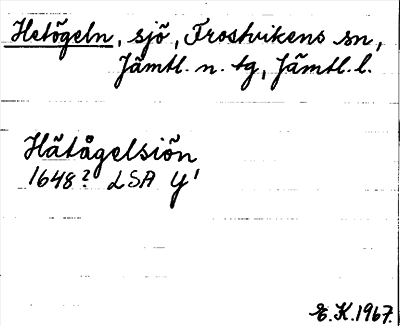 Hetögeln, sjö, Frostvikens sn,
Jämtl. n. tg, Jämtl. l.
Hätågelsiön
1648? LSA Y'
E.K. 1967.